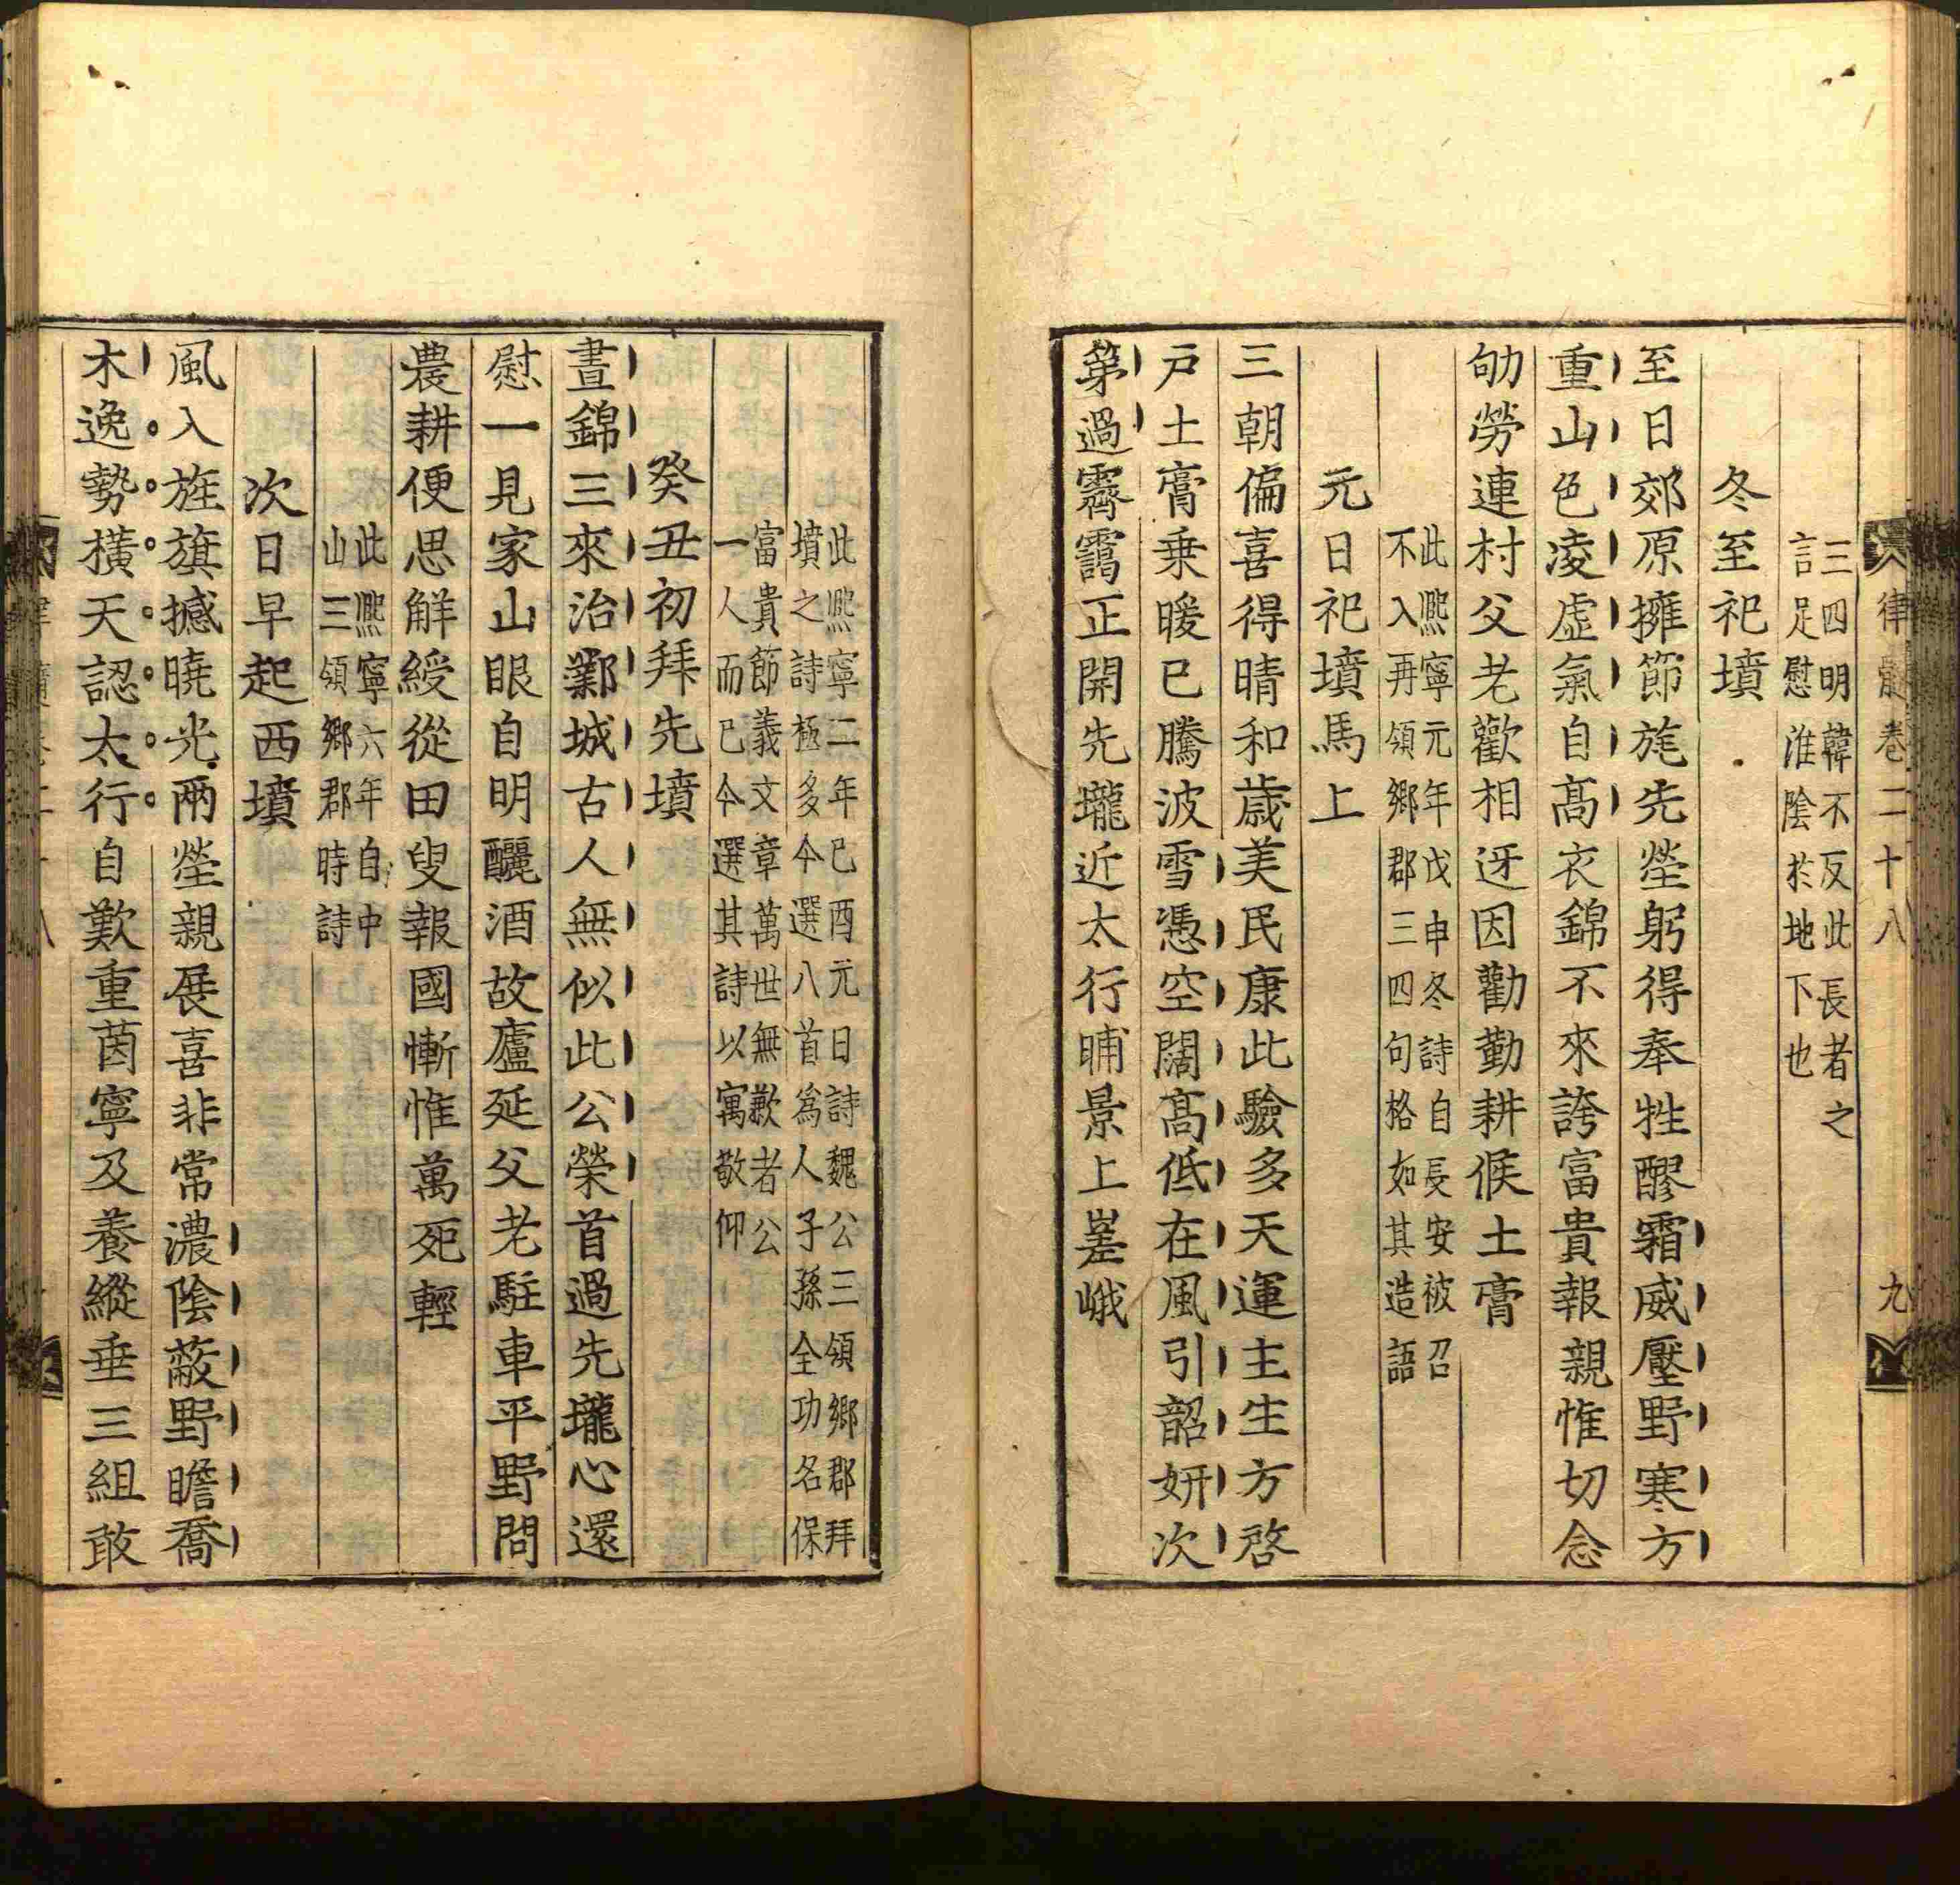 律髓卷二十八 九
三四明韓不反此長者之
言足慰淮陰於地下也
冬至祀墳
至日郊原擁節旄先塋躬得奉牲醪霜威壓野寒方
重山色凌虛氣自髙衣錦不來誇富貴報親惟切念
劬勞連村父老歡相迓因勸勤耕候土膏
此熈寧元年戊申冬詩自長安被召
不入再領鄉郡三四句格如其造語
元日祀墳馬上
三朝偏喜得晴和歲美民康此驗多天運主生方啓
戸土膏乗暖已騰波雪憑空闊髙低在風引韶妍次
第過霽靄正開先壠近太行晡景上嵳峨
此熈寧二年已酉元日詩魏公三領鄉郡拜
墳之詩極多今選八首爲人子孫全功名保
富貴節義文章萬世無歉者公
一人而已今選其詩以寓敬仰
癸丑初拜先墳
晝錦三來治鄴城古人無似此公榮首過先壠心還
慰一見家山眼自明釃酒故廬延父老駐車平野問
農耕便思解綬從田叟報國慚惟萬死輕
此熈寧六年自中
山三領鄉郡時詩
次日早起西墳
風入旌旗撼曉光兩塋親展喜非常濃陰蔽野瞻喬
木逸勢橫天認太行自歎重茵寧及養縱垂三組敢